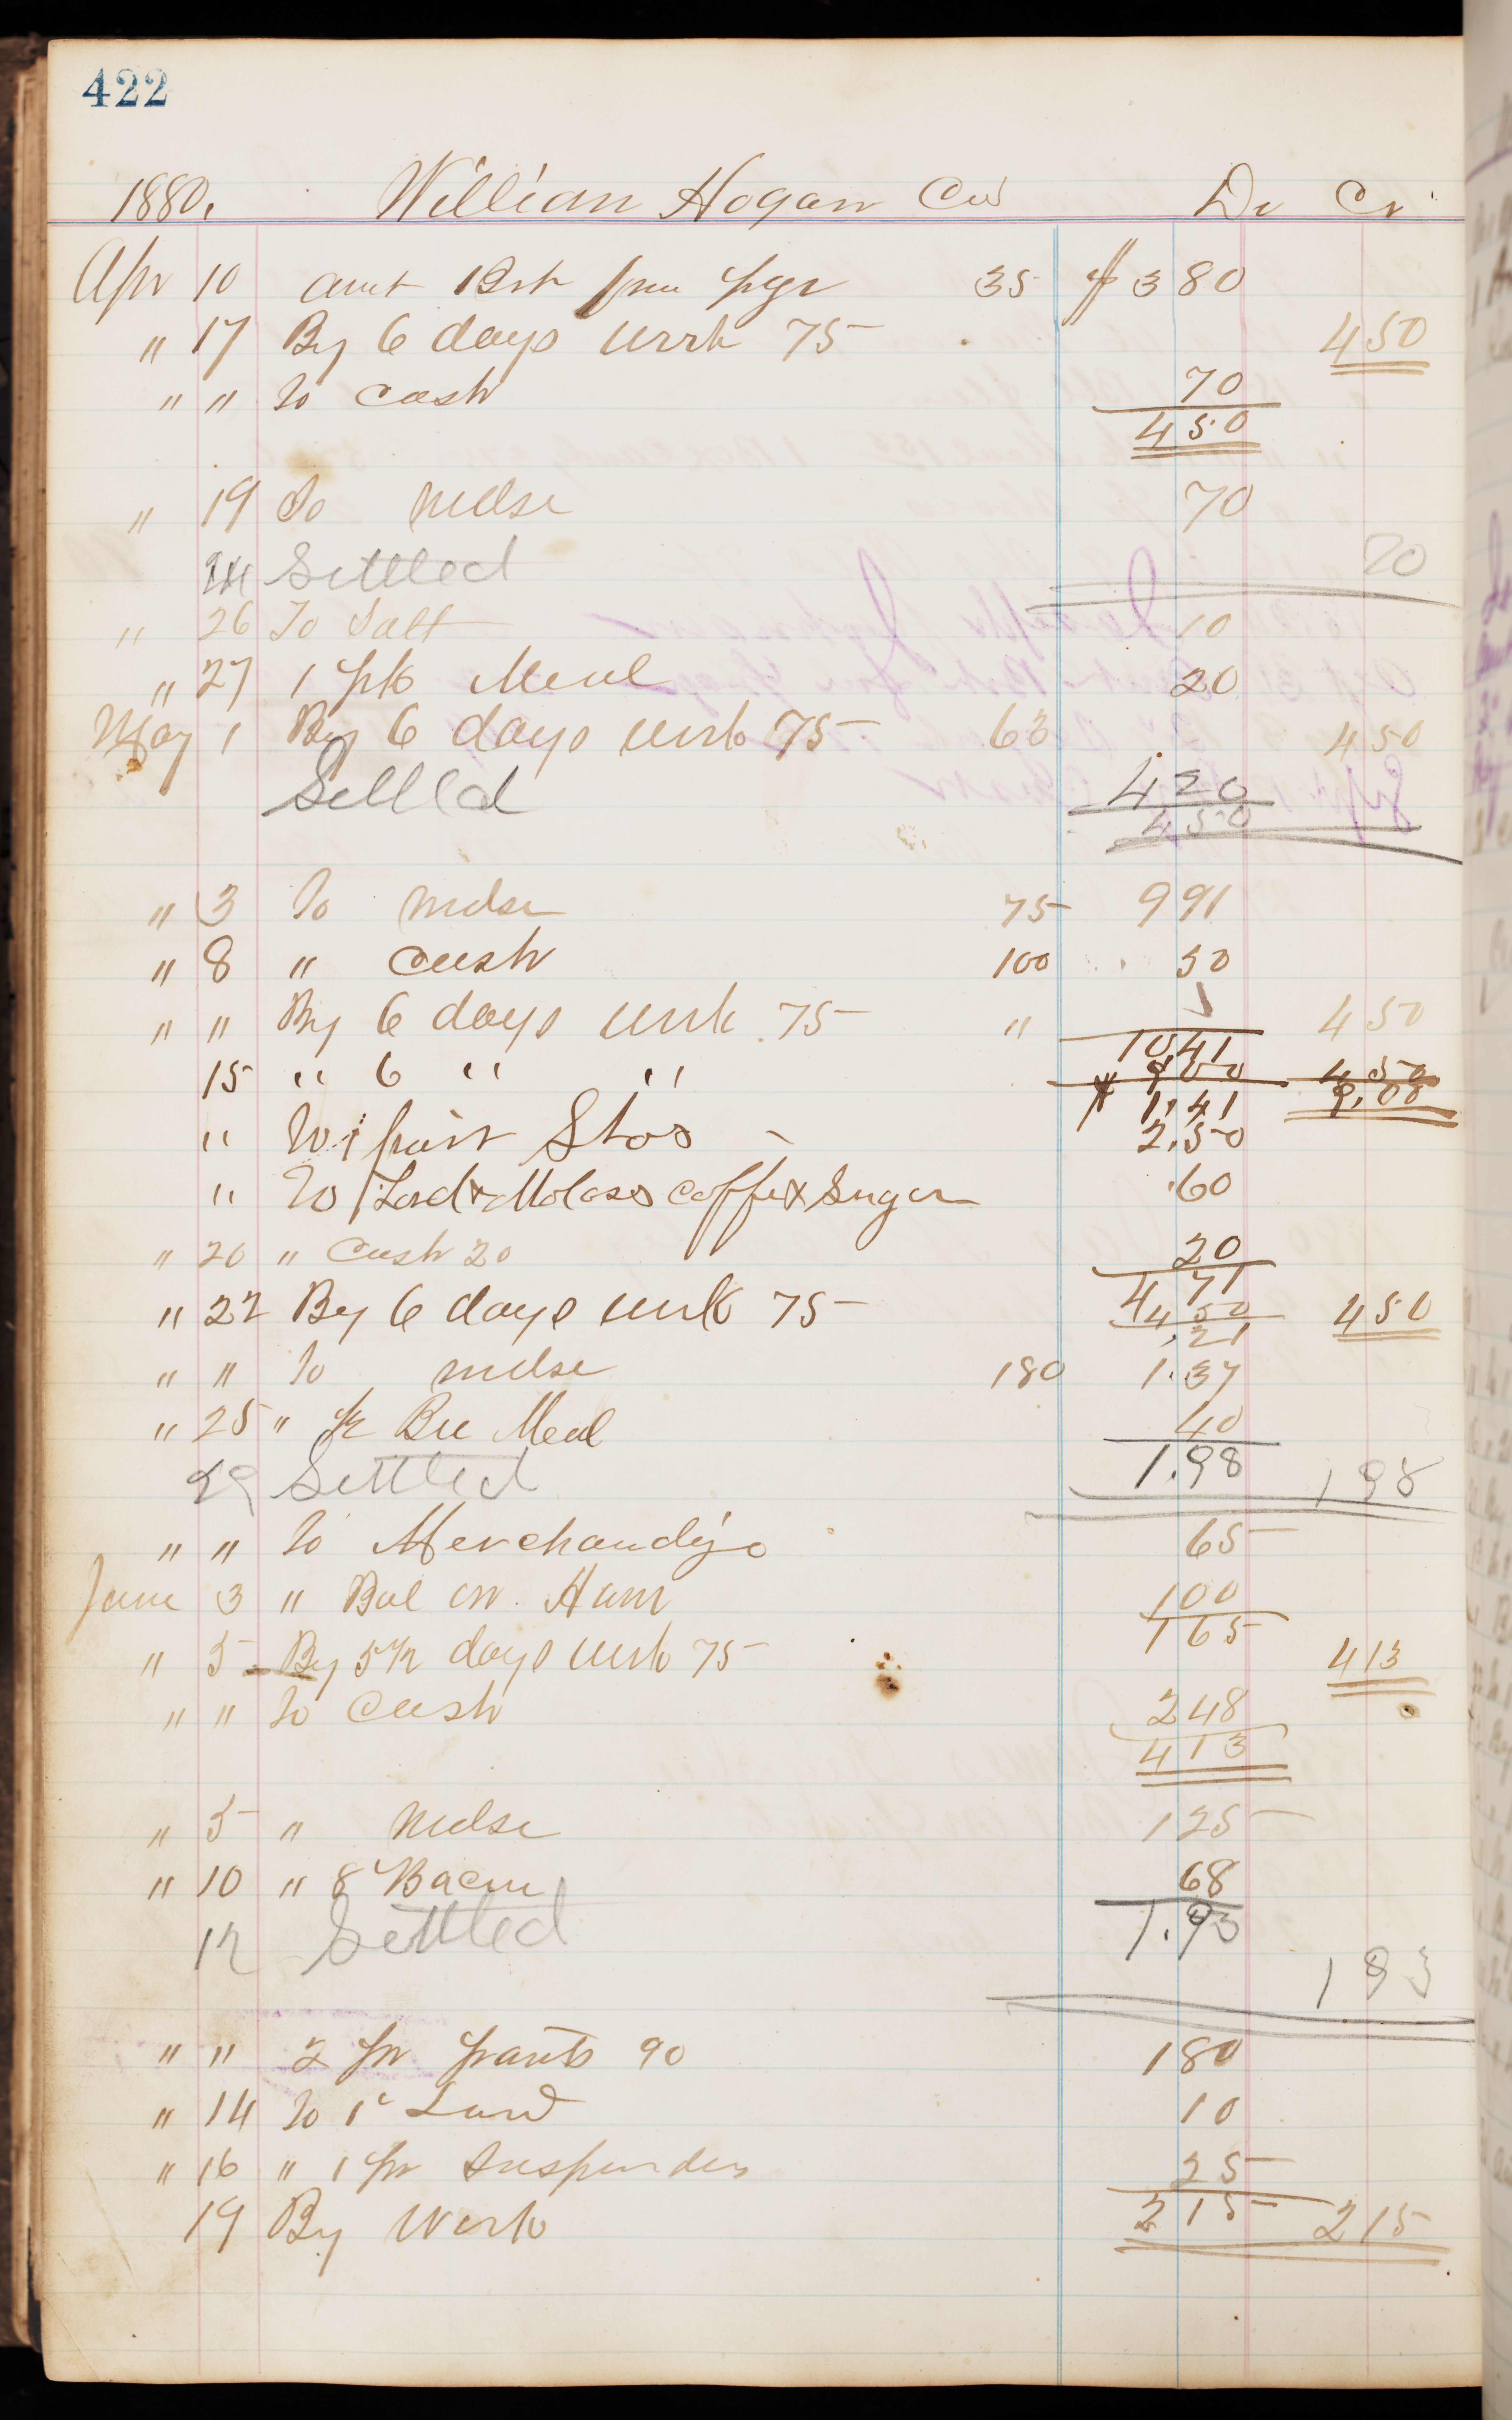 422
1880. William Hogan Col Dr Cr
Apr 10 Amt Brt from pge 35 $ 3 80
" 17 By 6 days work 75 4 50
" " To cash 70
4 50
" 19 To mdse 70
24 Settled 70
" 26 To Salt 10
" 27 1 pk Meal 20
May 1 By 6 days work 75 63 4 50
Settled 4 20
4 50
" 3 To mdse 75 9 91
" 8 " Cash 100 50
" " By 6 days work 75 " 4 50
10 41
15 " 6 " " 9 00 4 50
$ 1.41 9.00
" To 1 pair Shos 2.50
" To Lard & Molass coffe & Sugar .60
" 20 " Cash 20 20
4 71
" 22 By 6 days work 75 4 50 4 50
.21
" " To mdse 180 1.37
" 25 " ½ Bu Meal 40
29 Settled 1.98 1 98
" " To Merchandise 65
June 3 " Bal on Ham 1 00
1 65
" 5 By 5½ days work 75 4 13
" " To Cash 2 48
4 13
" 5 " mdse 1 25
" 10 " 8 Bacon 68
12 Settled 1.93
1 93
" " 2 pr pants 90 1 80
" 14 To 1 Lard 10
" 16 " 1 pr Suspenders 25
19 By Work 2 15 2 15